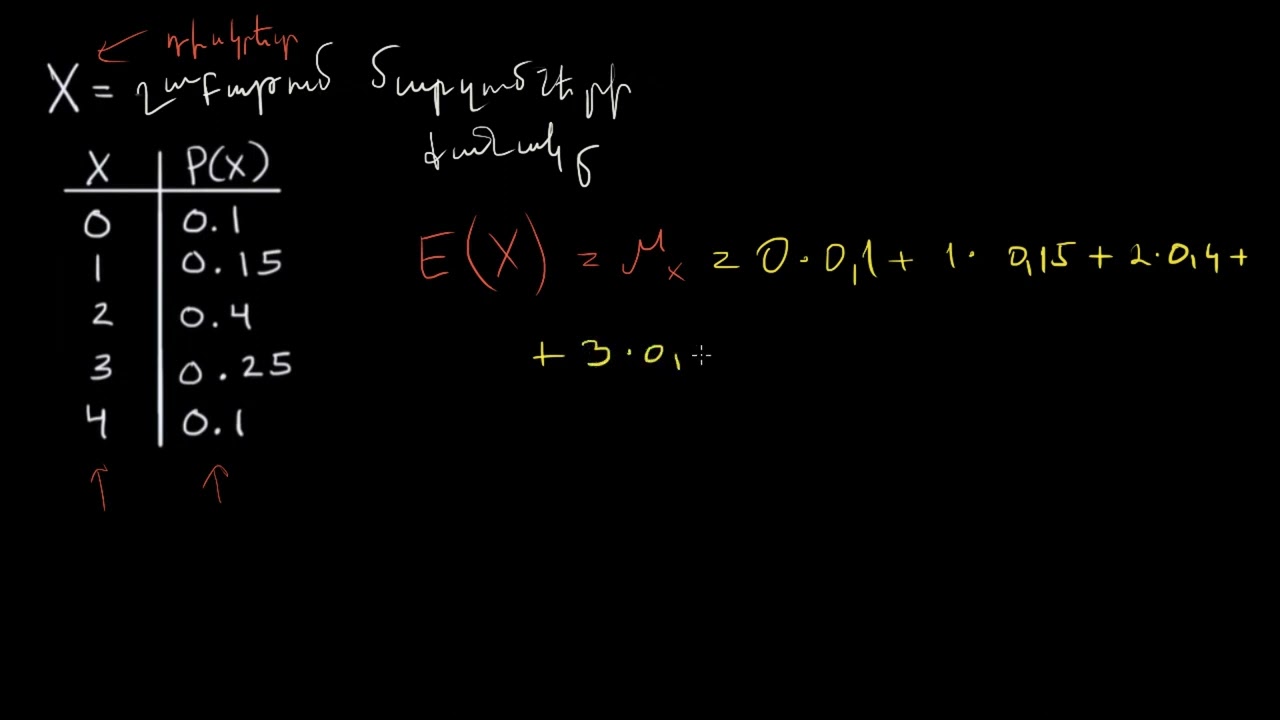 դիսկրետ
X = շաբաթում մարզումների
քանակը
X P(X)
0 0.1
1 0.15
2 0.4
3 0.25
4 0.1
E(X) = μₓ = 0·0,1 + 1·0,15 + 2·0,4 +
+ 3·0,